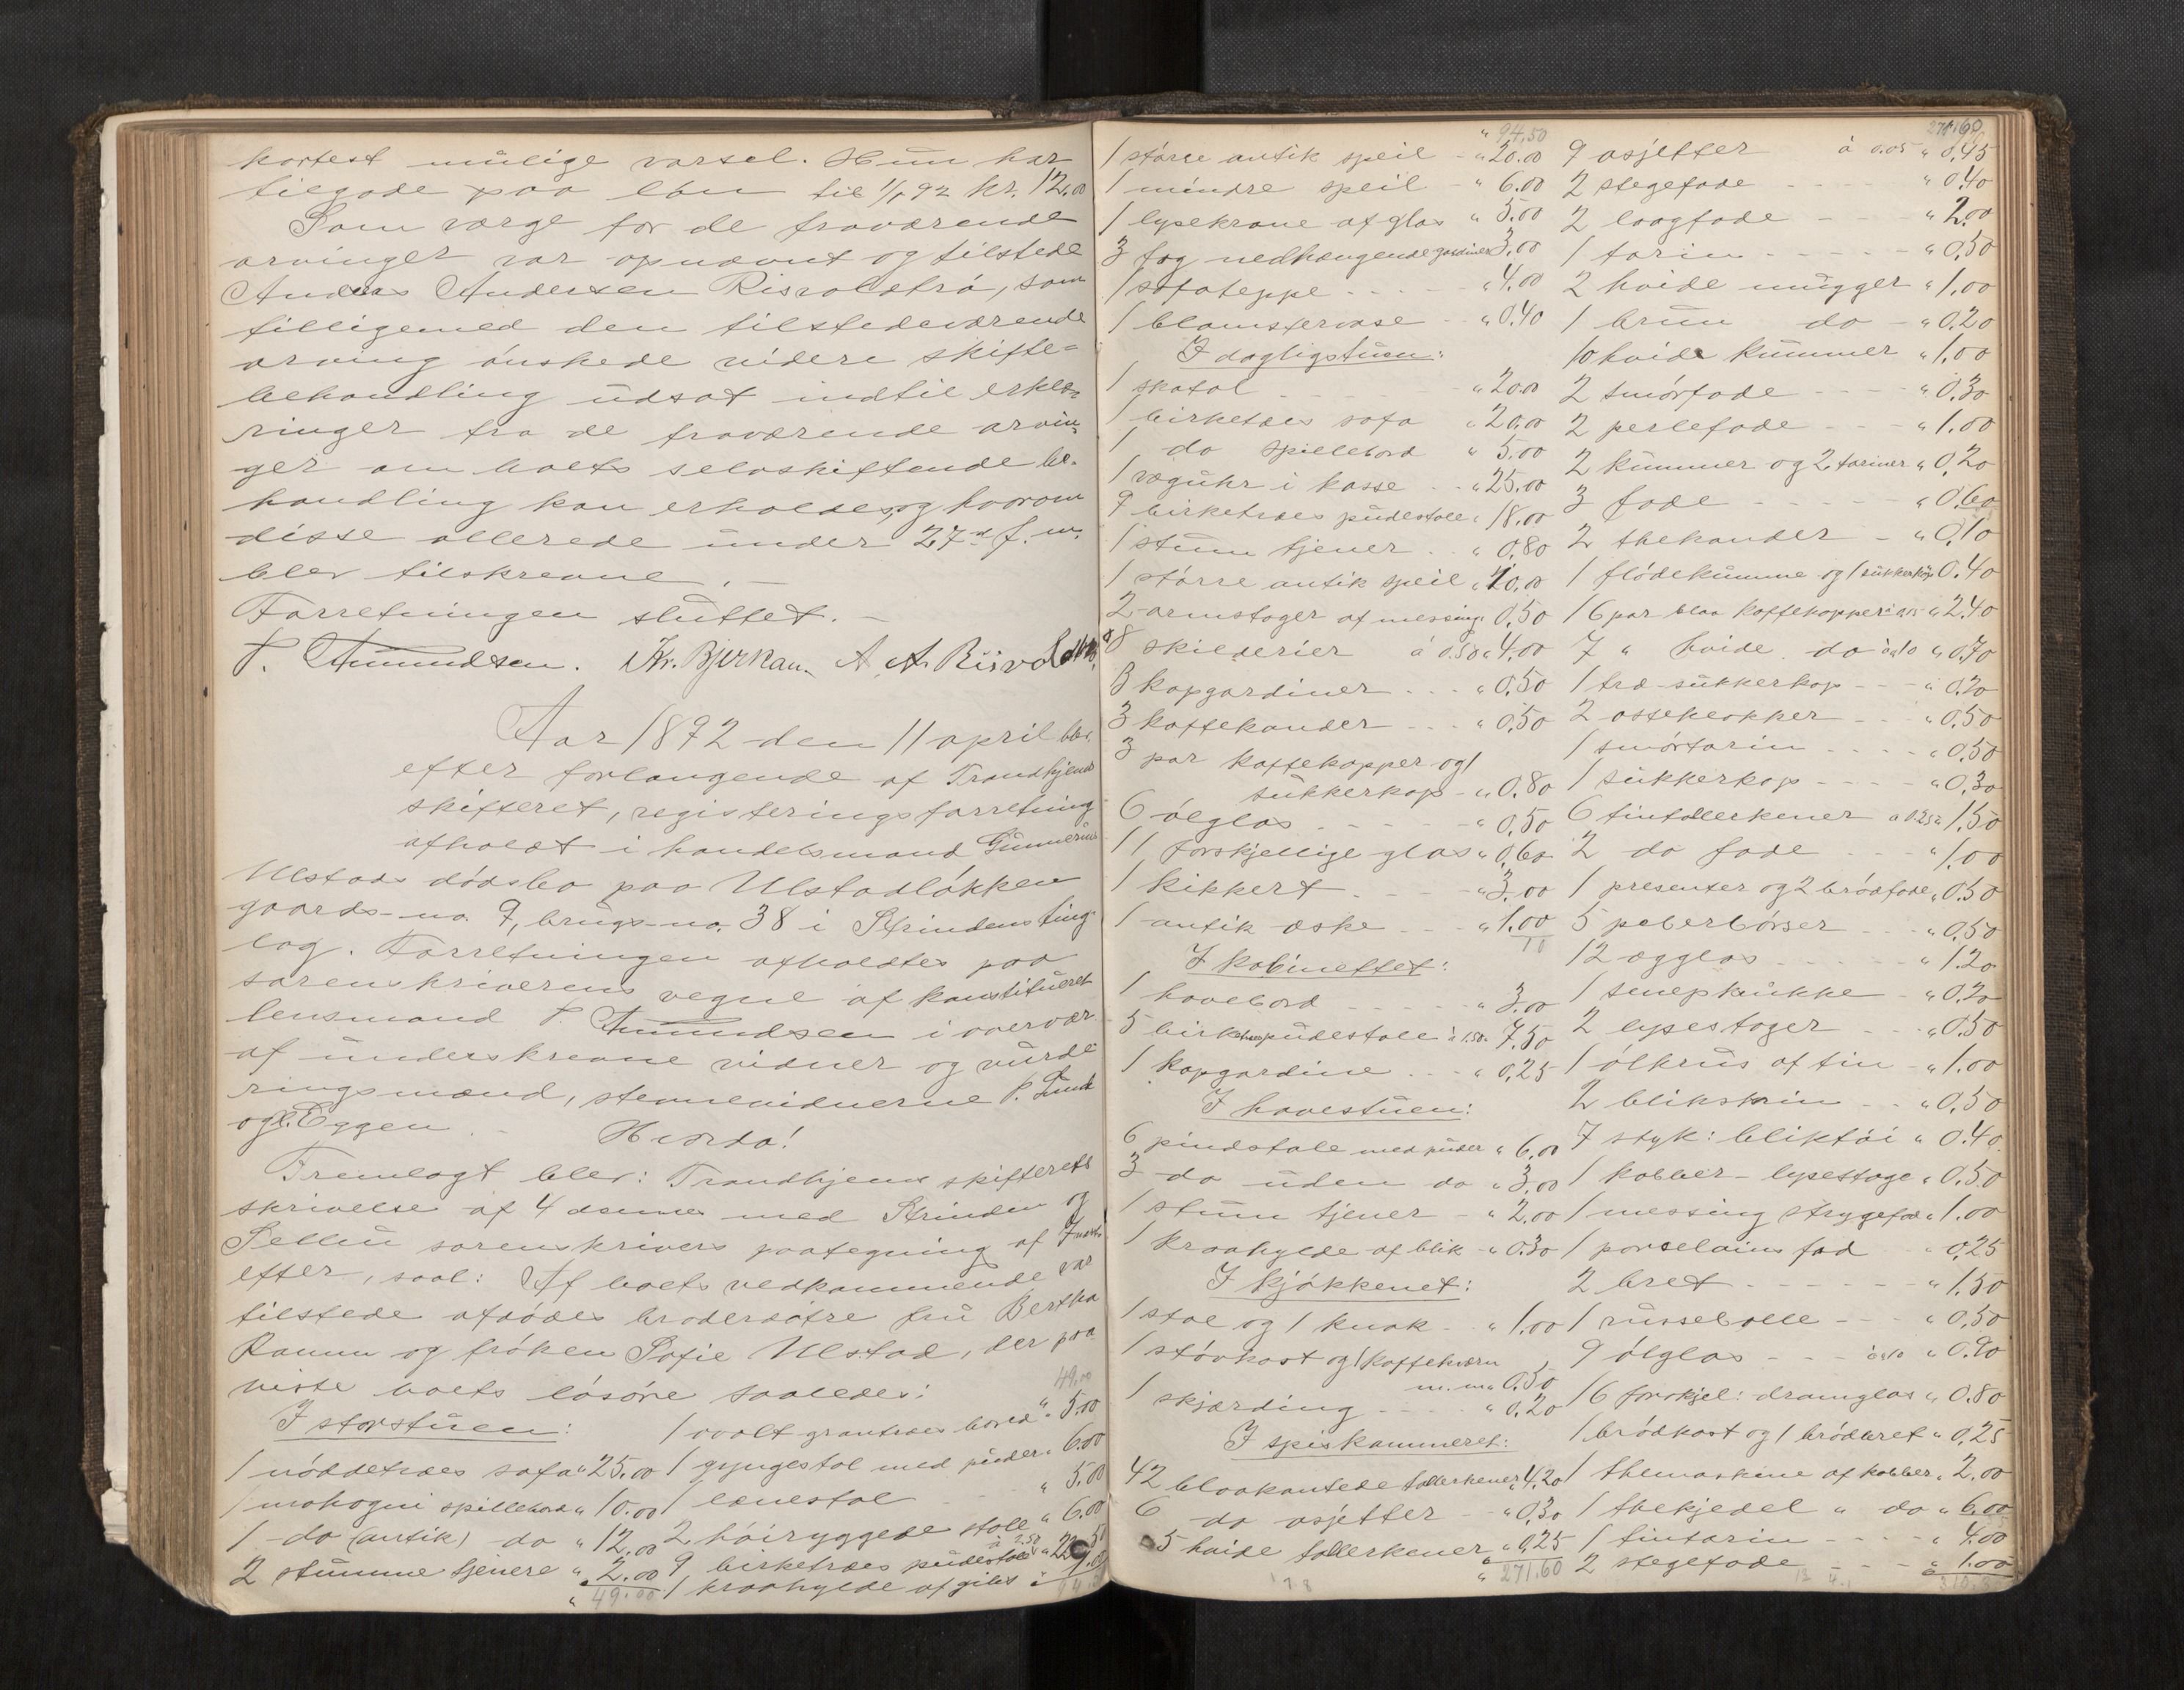 kortest mulige varsel. Hun har
tilgode paa løn til 1/1 92 kr. 12.00
Som værge for de fraværende
arvinger var opnævnt og tilstede
Anders Andersen Risvoldtrø, som
tilligemed den tilstedeværende
arving ønskede videre skifte-
behandling udsat indtil erklæ-
ringer fra de fraværende arvin-
ger om boets selvskiftende be-
handling kan erholdes, og hvorom
disse allerede under 27de f. m.
blev tilskrevne. –
Forretningen sluttet. –
P. Amundsen. Kr. Bjerkan A. A. Risvoldtrø
Aar 1892 den 11 april blev
efter forlangende af Trondhjems
skifteret, registeringsforretning
afholdt i handelsmand Gunnerius
Ulstads dødsbo paa Ulstadløkken
gaards-no. 9, brugs-no. 38 i Strindens ting-
lag. Forretningen afholdtes paa
sorenskriverens vegne af konstitueret
lensmand P. Amundsen i overvær
af underskrevne vidner og vurde-
ringsmænd, stevnevidnerne P. Lund
og E. Eggen. – Hvorda!
Fremlagt blev: Trondhjems skifterets
skrivelse af 4 dennes med Strinden og
Selbu sorenskrivers paategning af 7 næst-
efter, saal: Af boets vedkommende var
tilstede afdødes brodersøtre fru Bertha
Ramm og frøken Sofie Ulstad, der paa-
viste boets løsøre saaledes:
I storstuen:
1 nøddetræes sofa " 25.00
1 mahogni spillebord " 10.00
1 do (antik) do " 12.00
2 stumme tjenere " 2.00
" 49.00
49.00
1 ovalt grantræes bord " 5.00
1 gyngestol med puder " 6.00
1 lænestol " 5.00
2 høiryggede stole " 6.00
9 birketræes pudestole à 2.50 " 22.50
1 kraahylde af gibs " 1.00
" 94.50
1 større antik speil " 20.00
1 mindre speil " 6.00
1 lysekrone af glas " 5.00
3 fag nedhængende gardiner 3.00
1 sofateppe " 4.00
1 blomstervase " 0.40
I dagligstuen:
1 skatol " 20.00
1 birketræes sofa " 20.00
1 do spillebord " 5.00
1 væguhr i kasse " 25.00
9 birketræes pudestole " 18.00
1 stum tjener " 0.80
1 større antik speil " 10.00
2 armstager af messing " 0.50
8 skilderier à 0.50 " 4.00
3 kapgardiner " 0.50
3 kaffekander " 0.50
3 par kaffekopper og 1
sukkerkop " 0.80
6 ølglas " 0.50
11 forskjellige glas " 0.60
1 kikkert " 3.00
1 antik æske " 1.00
I kabinettet:
1 havebord " 3.00
5 birketræes pudestole à 1.50 " 7.50
1 kapgardine " 0.25
I havestuen:
6 pindstole med puder " 6.00
3 do uden do " 3.00
1 stum tjener " 2.00
1 kraahylde af blik " 0.30
I kjøkkenet:
1 stol og 1 knak " 1.00
1 støvkost og 1 kaffekværn
m. m. 0.50
1 skjærding " 0.20
I spiskammeret:
42 blaakantede tallerkener " 4.20
6 do asjetter " 0.30
5 hvide tallerkener " 0.25
" 271.60
271.60
9 asjetter à 0.05 " 0.45
2 stegefade " 0.40
2 laagfade " 2.00
1 tarin " 0.50
2 hvide mugger " 1.00
1 brun do " 0.20
10 hvide kummer " 1.00
2 smørfade " 0.30
2 perlefade " 1.00
2 kummer og 2 tariner " 0.20
3 fade " 0.60
2 thekander " 0.10
1 flødekumme og 1 sukkerkop 0.40
16 par blaa kaffekopper à 0.15 " 2.40
7 " hvide do à 0.10 " 0.70
1 træ-sukkerkop " 0.20
2 osteklokker " 0.50
1 smørtarin " 0.50
1 sukkerkop " 0.30
6 tintallerkener à 0.25 " 1.50
2 do fade " 1.00
1 presenter og 2 brødfade " 0.50
5 peberbøsser " 0.50
12 ægglas " 1.20
1 senepkrukke " 0.20
2 lysestager " 0.50
1 ølkrus af tin " 1.00
2 blikskrin " 0.50
7 styk: bliktøi " 0.40
1 kobber-lysestage " 0.50
1 messing strygefad " 1.00
1 porselains fad " 0.25
2 bret " 1.50
1 russebolle " 0.50
9 ølglas à 0.10 " 0.90
16 forskjel: dramglas " 0.80
1 brødkost og 1 brødbret " 0.25
1 themaskine af kobber " 2.00
1 thekjedel " do " 6.00
1 tintarin " 4.00
2 stegefade " 1.00